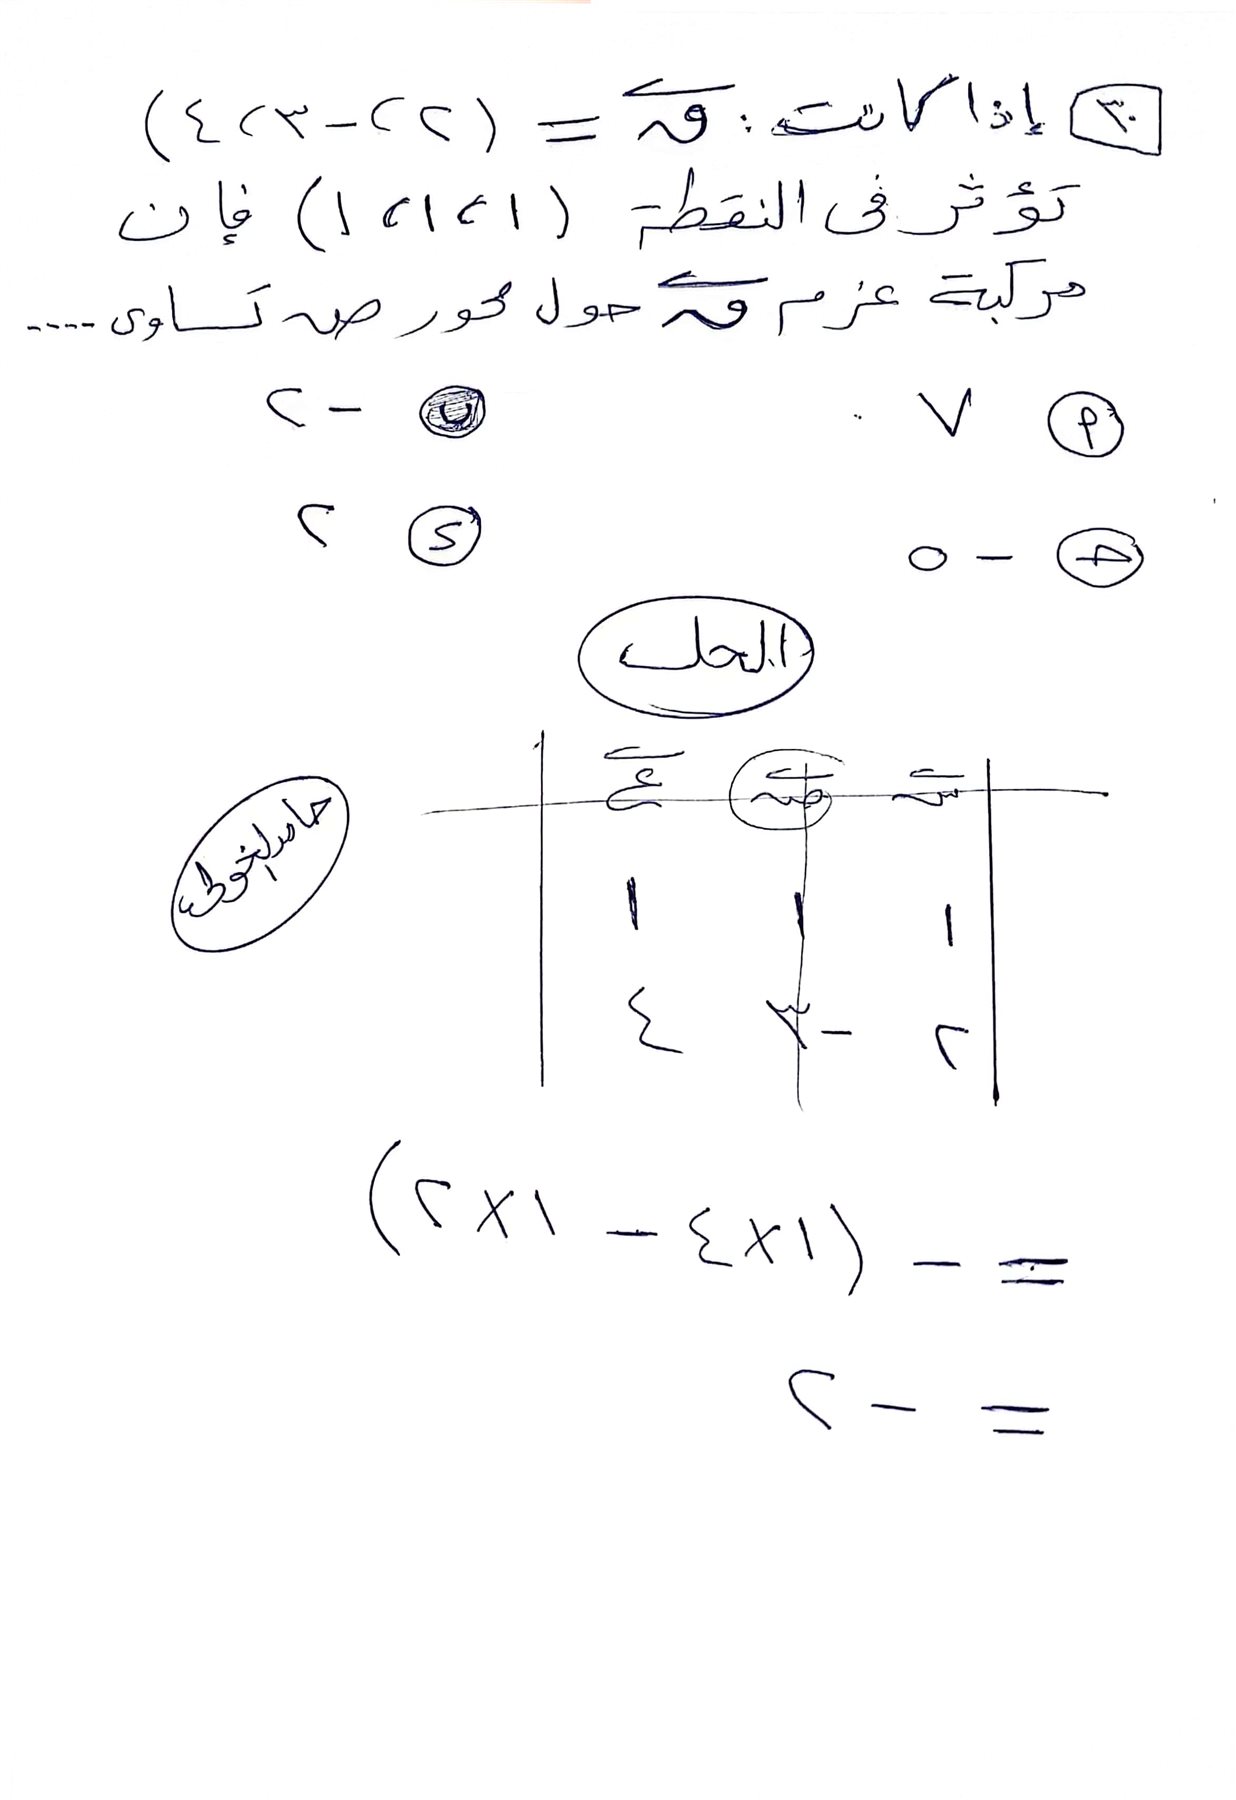 ٣٠ إذا كانت: ق = (٢، -٣، ٤)
تؤثر فى النقطة (١، ١، ١) فإن
مركبة عزم ق حول محور ص تساوى ....
أ ٧ ب -٢
ج -٥ د ٢
الحل
س ص ع
١ ١ ١
حامد الخولى
٢ -٣ ٤
= - (١×٤ - ١×٢)
= -٢